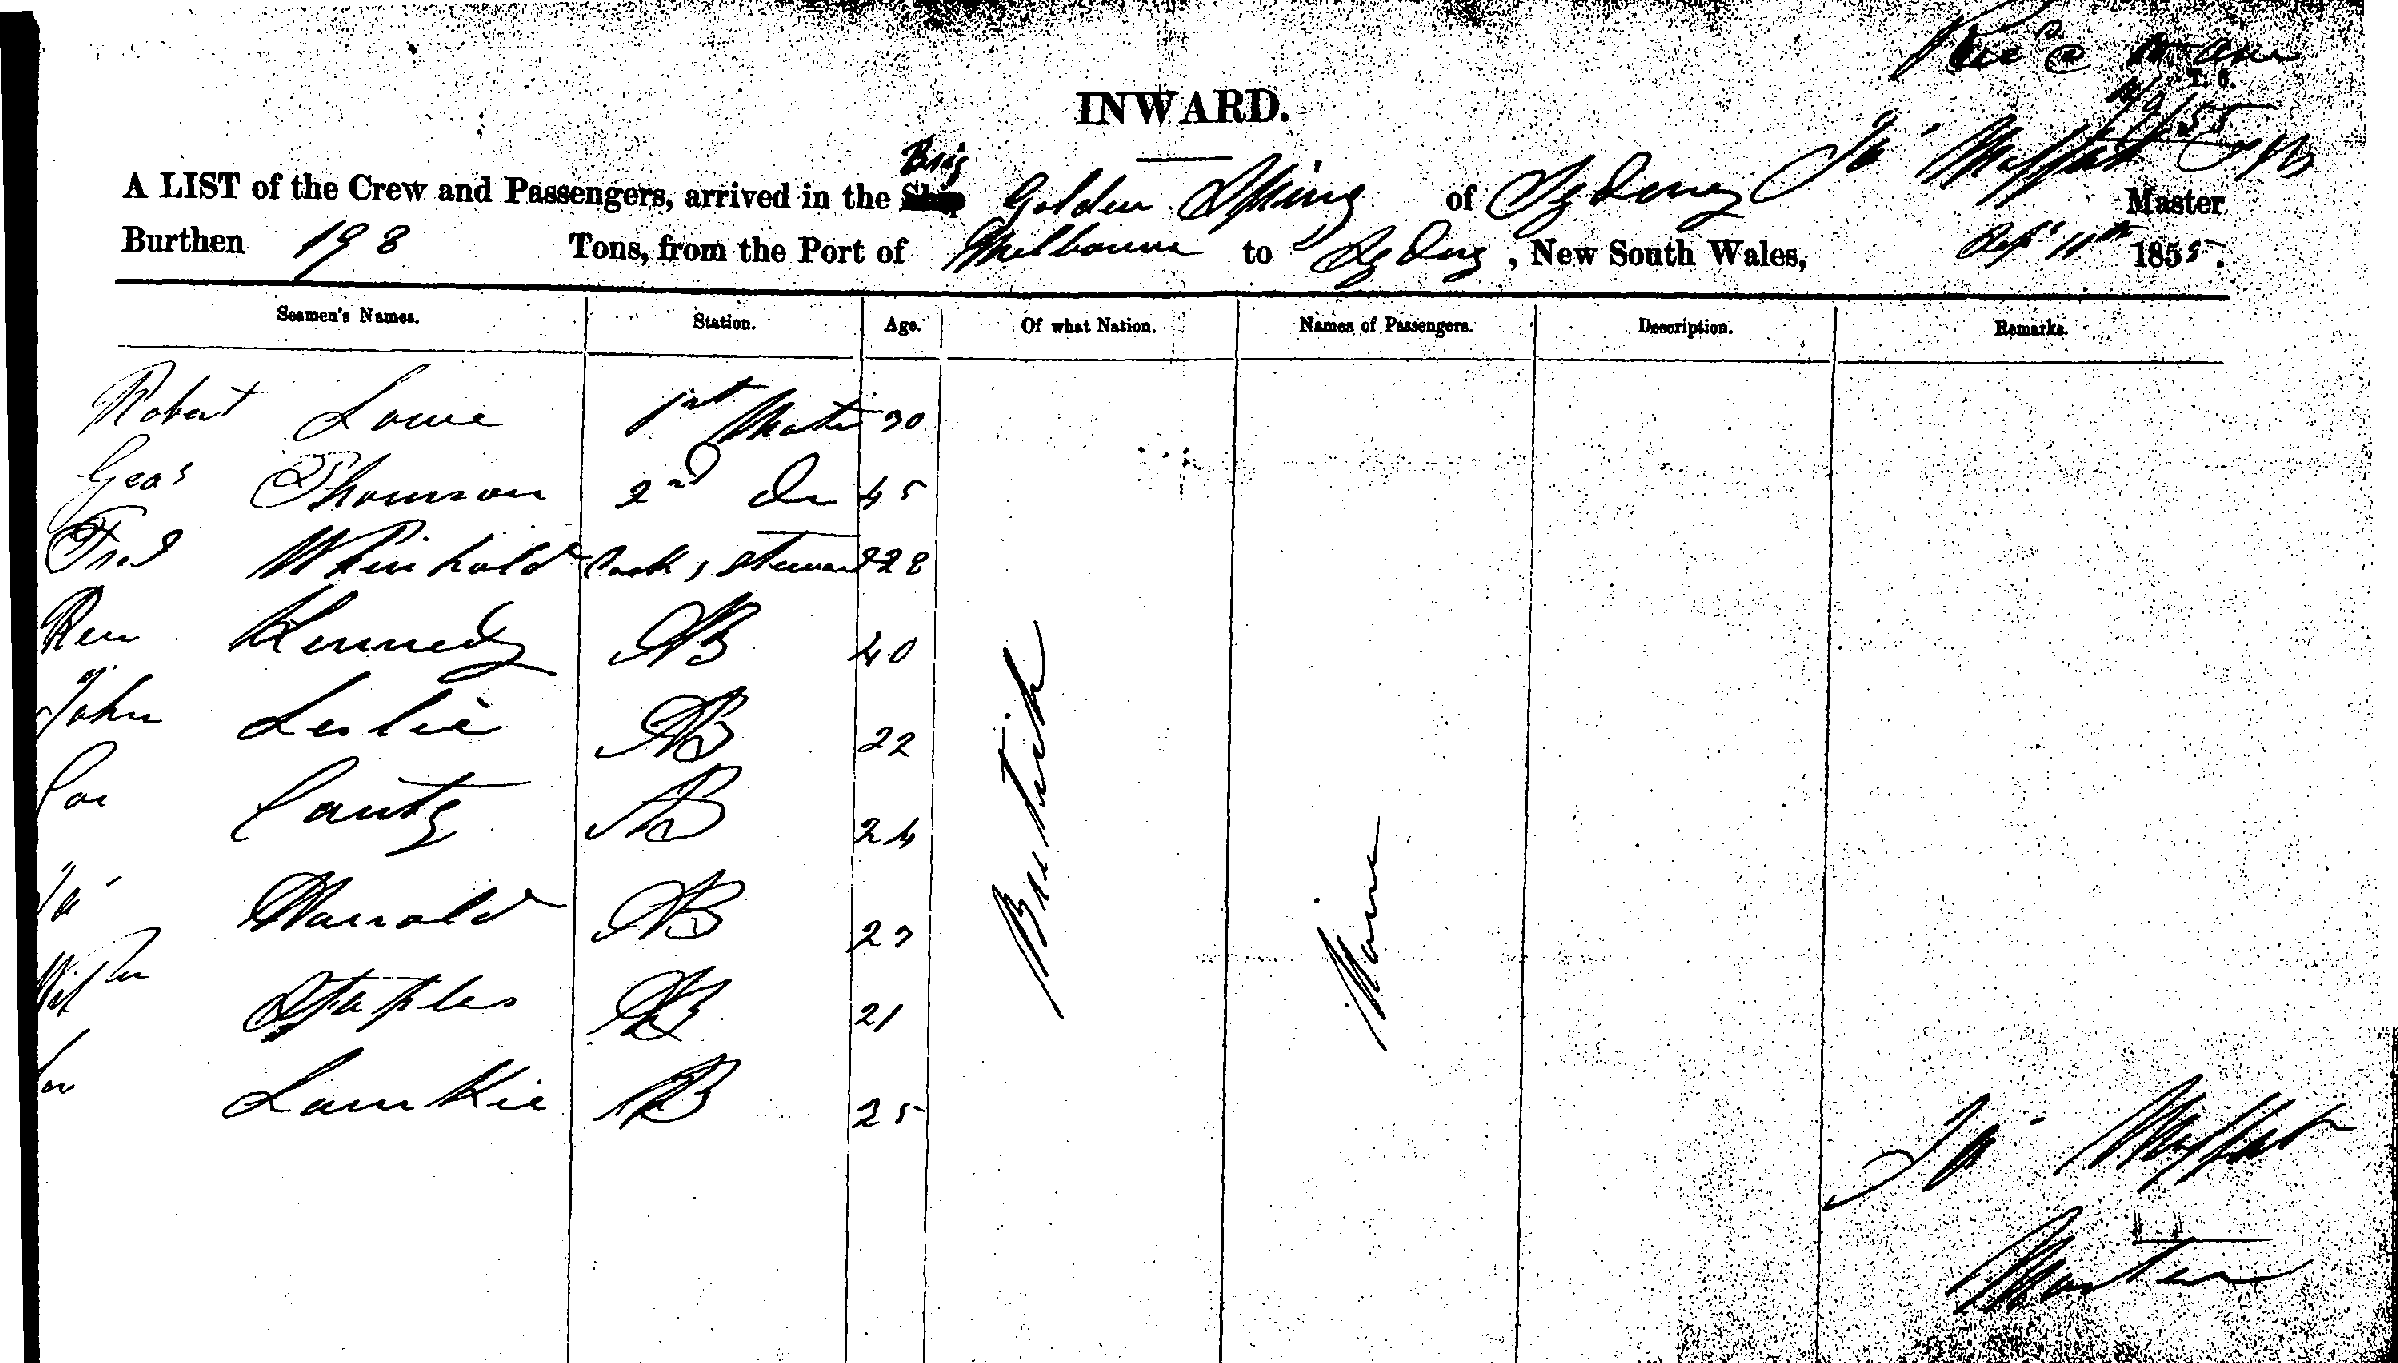 INWARD.
A LIST of the Crew and Passengers, arrived in the Brig Golden Spring of Sydney Ja^s Moffat Master
Burthen 198 Tons, from the Port of Melbourne to Sydney, New South Wales, Sept 11th 1855.
Seamen's Names. Station. Age. Of what Nation. Names of Passengers. Description. Remarks.
Robert Lowe 1st Mate 30
Geo^s Thomson 2nd Do 45
Fred Whinhold Cook & Steward 28
Kennedy AB 40
John Leslie AB 22
Canty AB 24
Ja^s Harrald AB 23
Staples AB 21
Lamkie AB 25
British
None
Ja^s Moffat
Master